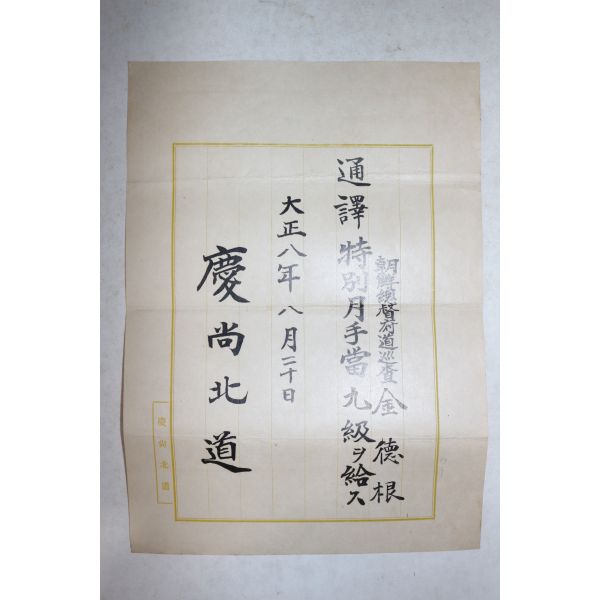 朝鮮總督府道巡查 金德根
通譯特別月手當九級ヲ給ス
大正八年八月二十日
慶尚北道
慶尚北道